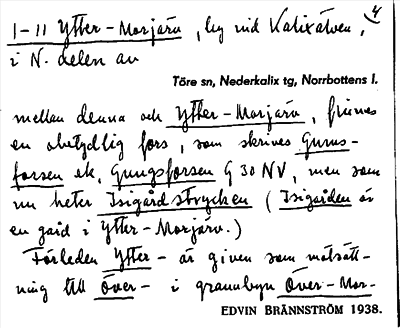 4
1-11 Ytter-Morjärv, by vid Kalixälven,
i N. delen av
Töre sn, Nederkalix tg, Norrbottens l.
mellan denna och Ytter-Morjärv, finnes
en obetydlig fors, som skrives Gunus-
forsen ek, Gungsforsen G 30 NV, men som
nu heter Isigårdstrycken (Isigården är
en gård i Ytter-Morjärv.)
Förleden Ytter- är given som motsätt-
ning till Över- i grannbyn Över-Mor-
EDVIN BRÄNNSTRÖM 1938.